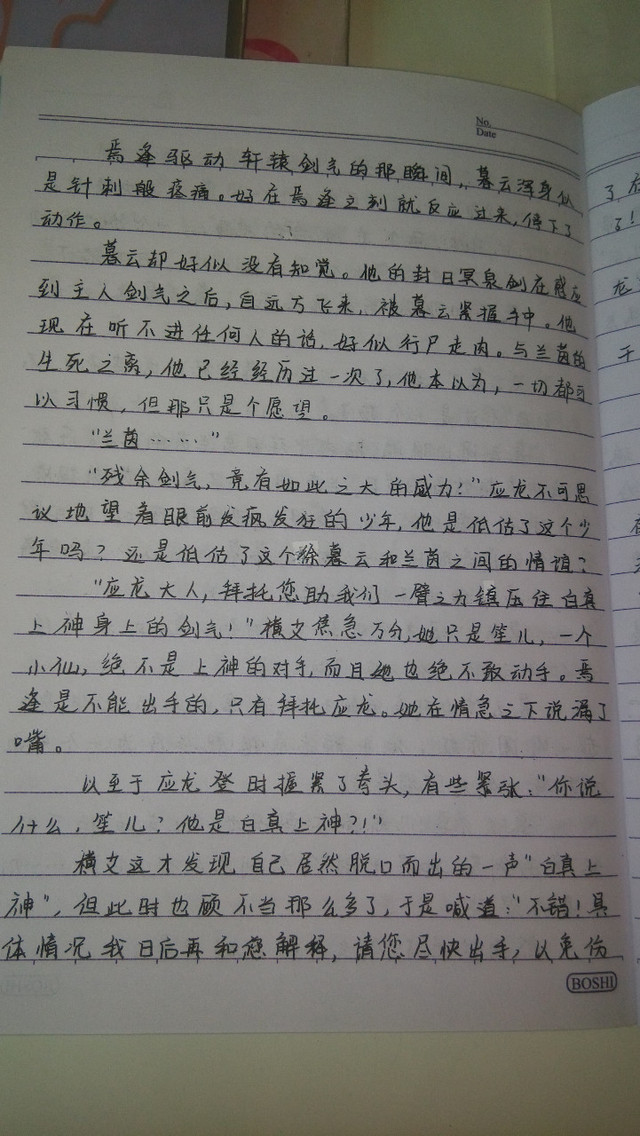 No.
Date
焉逢驱动轩辕剑气的那瞬间，暮云浑身似
是针刺般疼痛。好在焉逢立刻就反应过来，停下了
动作。
暮云却好似没有知觉。他的封日冥泉剑在感应
到主人剑气之后，自远方飞来，被暮云紧握手中。他
现在听不进任何人的话，好似行尸走肉。与兰茵的
生死之离，他已经经历过一次了，他本以为，一切都可
以习惯，但那只是个愿望。
“兰茵……”
“残余剑气，竟有如此之大的威力！”应龙不可思
议地望着眼前发疯发狂的少年，他是低估了这个少
年吗？还是低估了这个徐暮云和兰茵之间的情谊？
“应龙大人，拜托您助我们一臂之力镇压住白真
上神身上的剑气！”横艾焦急万分，她只是笙儿，一个
小仙，绝不是上神的对手，而且她也绝不敢动手。焉
逢是不能出手的，只有拜托应龙。她在情急之下说漏了
嘴。
以至于应龙登时握紧了拳头，有些紧张：“你说
什么，笙儿？他是白真上神？！”
横艾这才发现自己居然脱口而出的一声“白真上
神”，但此时也顾不当那么多了，于是喊道：“不错！具
体情况我日后再和您解释，请您尽快出手，以免伤
BOSHI
了，在
了！
龙
干